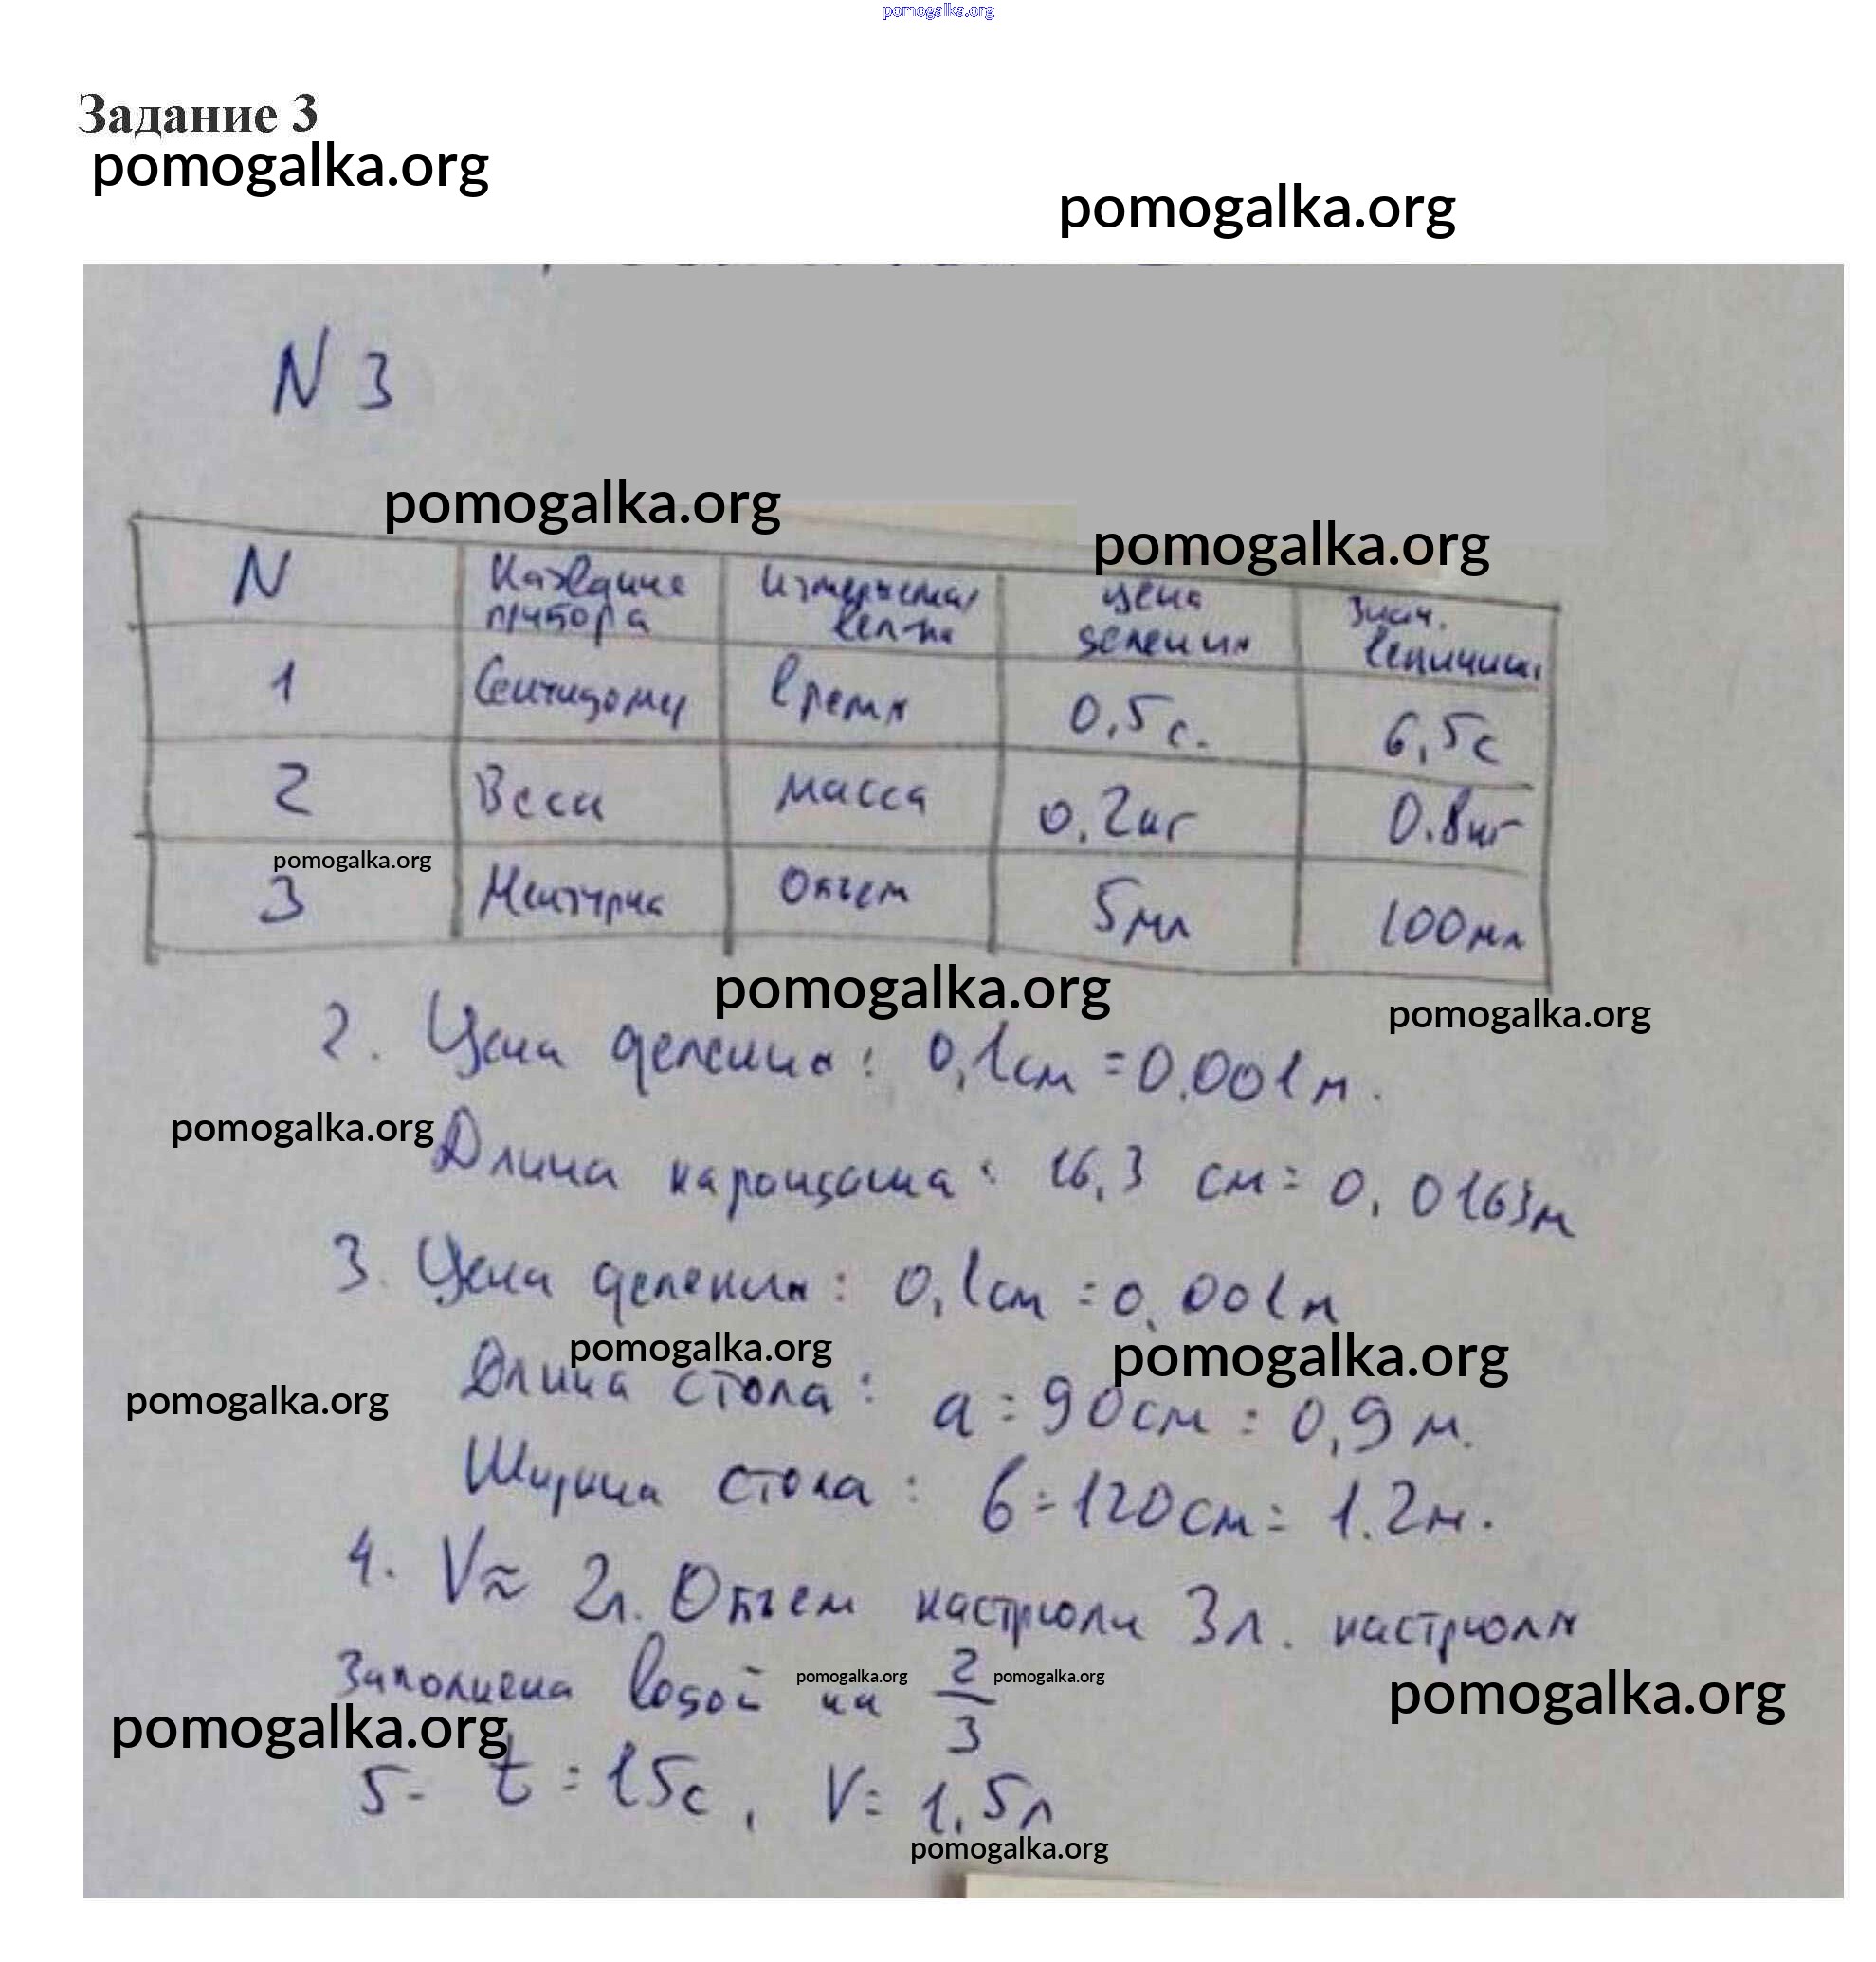 pomogalka.org
Задание 3
pomogalka.org
pomogalka.org
N 3
pomogalka.org
pomogalka.org
N Название прибора Измеряемая вел-на цена деления Знач. величины
1 Секундомер время 0,5с. 6,5с
2 Весы масса 0,2кг 0.8кг
pomogalka.org
3 Мензурка Объем 5мл 100мл
pomogalka.org
pomogalka.org
2. Цена деления: 0,1см = 0.001м.
pomogalka.org
Длина карандаша: 16,3 см = 0,0163м
3. Цена деления: 0,1см = 0.001м
pomogalka.org
pomogalka.org
Длина стола: a = 90см = 0,9 м.
pomogalka.org
Ширина стола: b = 120см = 1.2м.
4. V≈ 2л. Объем кастрюли 3л. кастрюля
заполнена водой на 2/3
pomogalka.org
pomogalka.org
pomogalka.org
pomogalka.org
5- t = 15с, V = 1,5л
pomogalka.org